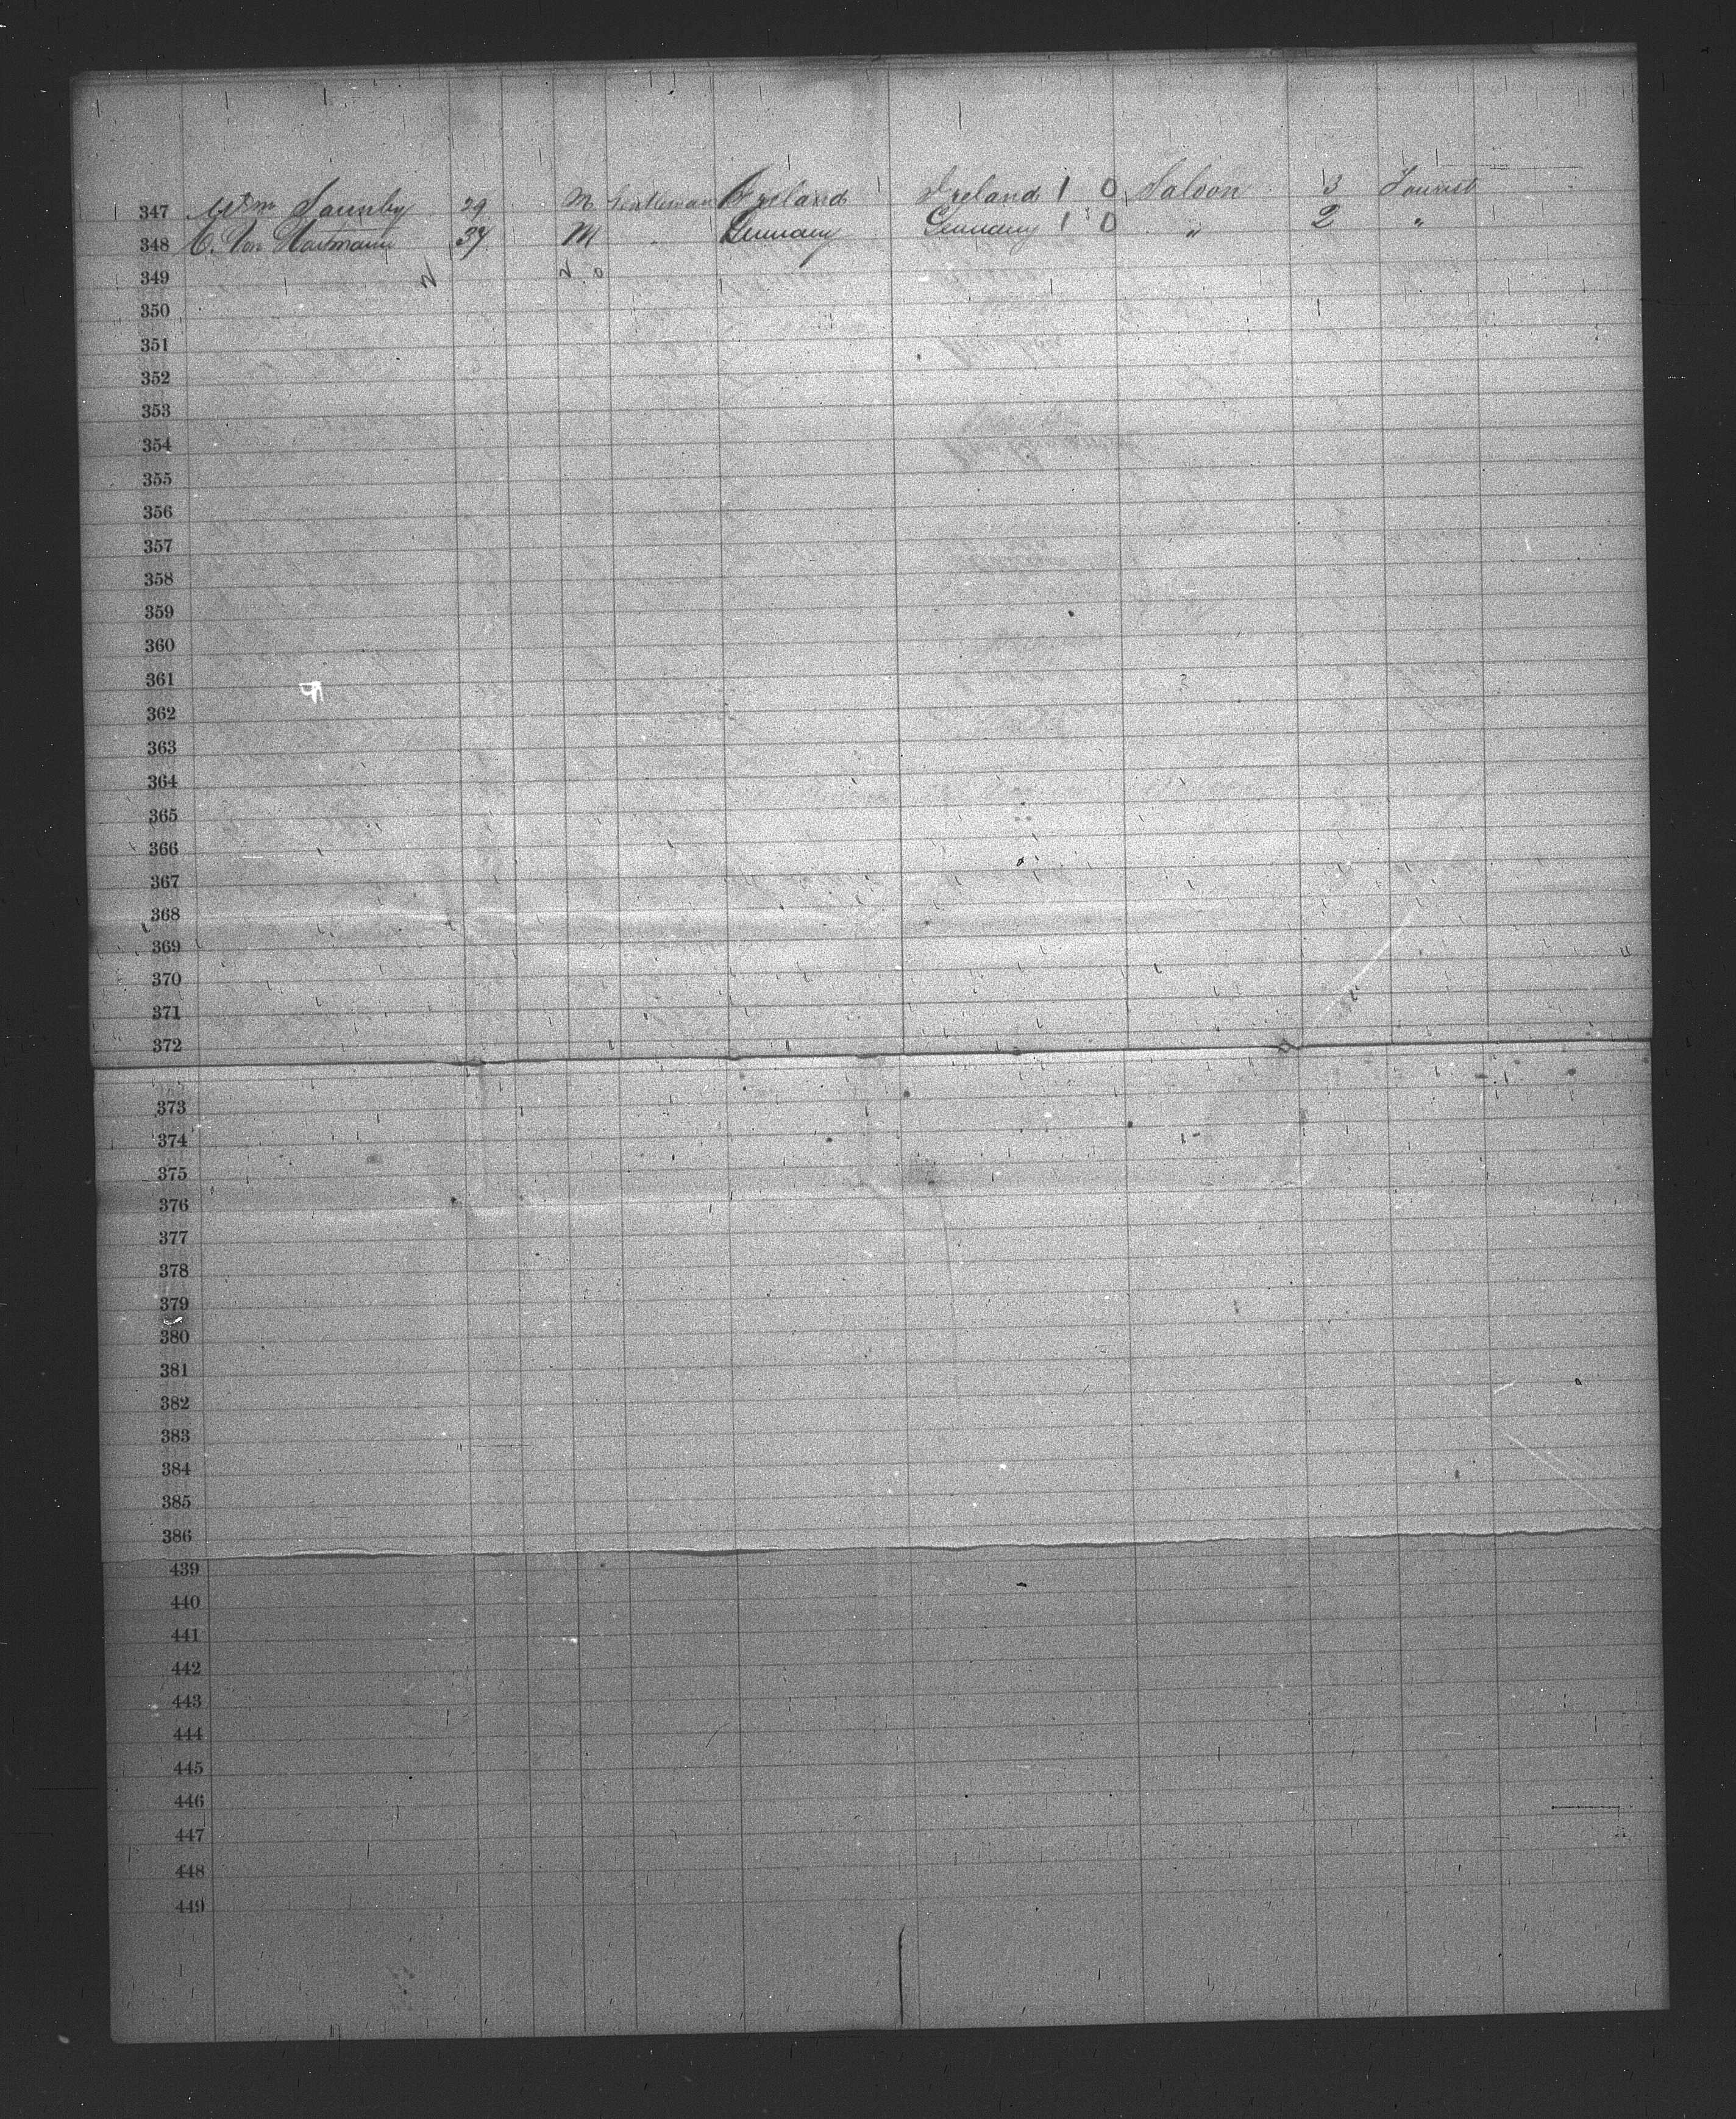 347 Wm Saunby 29 M Gentleman Ireland Ireland 1 0 Saloon 3 Tourist
348 C. Von Hartmann 37 M " Germany Germany 1 0 " 2 "
349
350
351
352
353
354
355
356
357
358
359
360
361
362
363
364
365
366
367
368
369
370
371
372
373
374
375
376
377
378
379
380
381
382
383
384
385
386
439
440
441
442
443
444
445
446
447
448
449